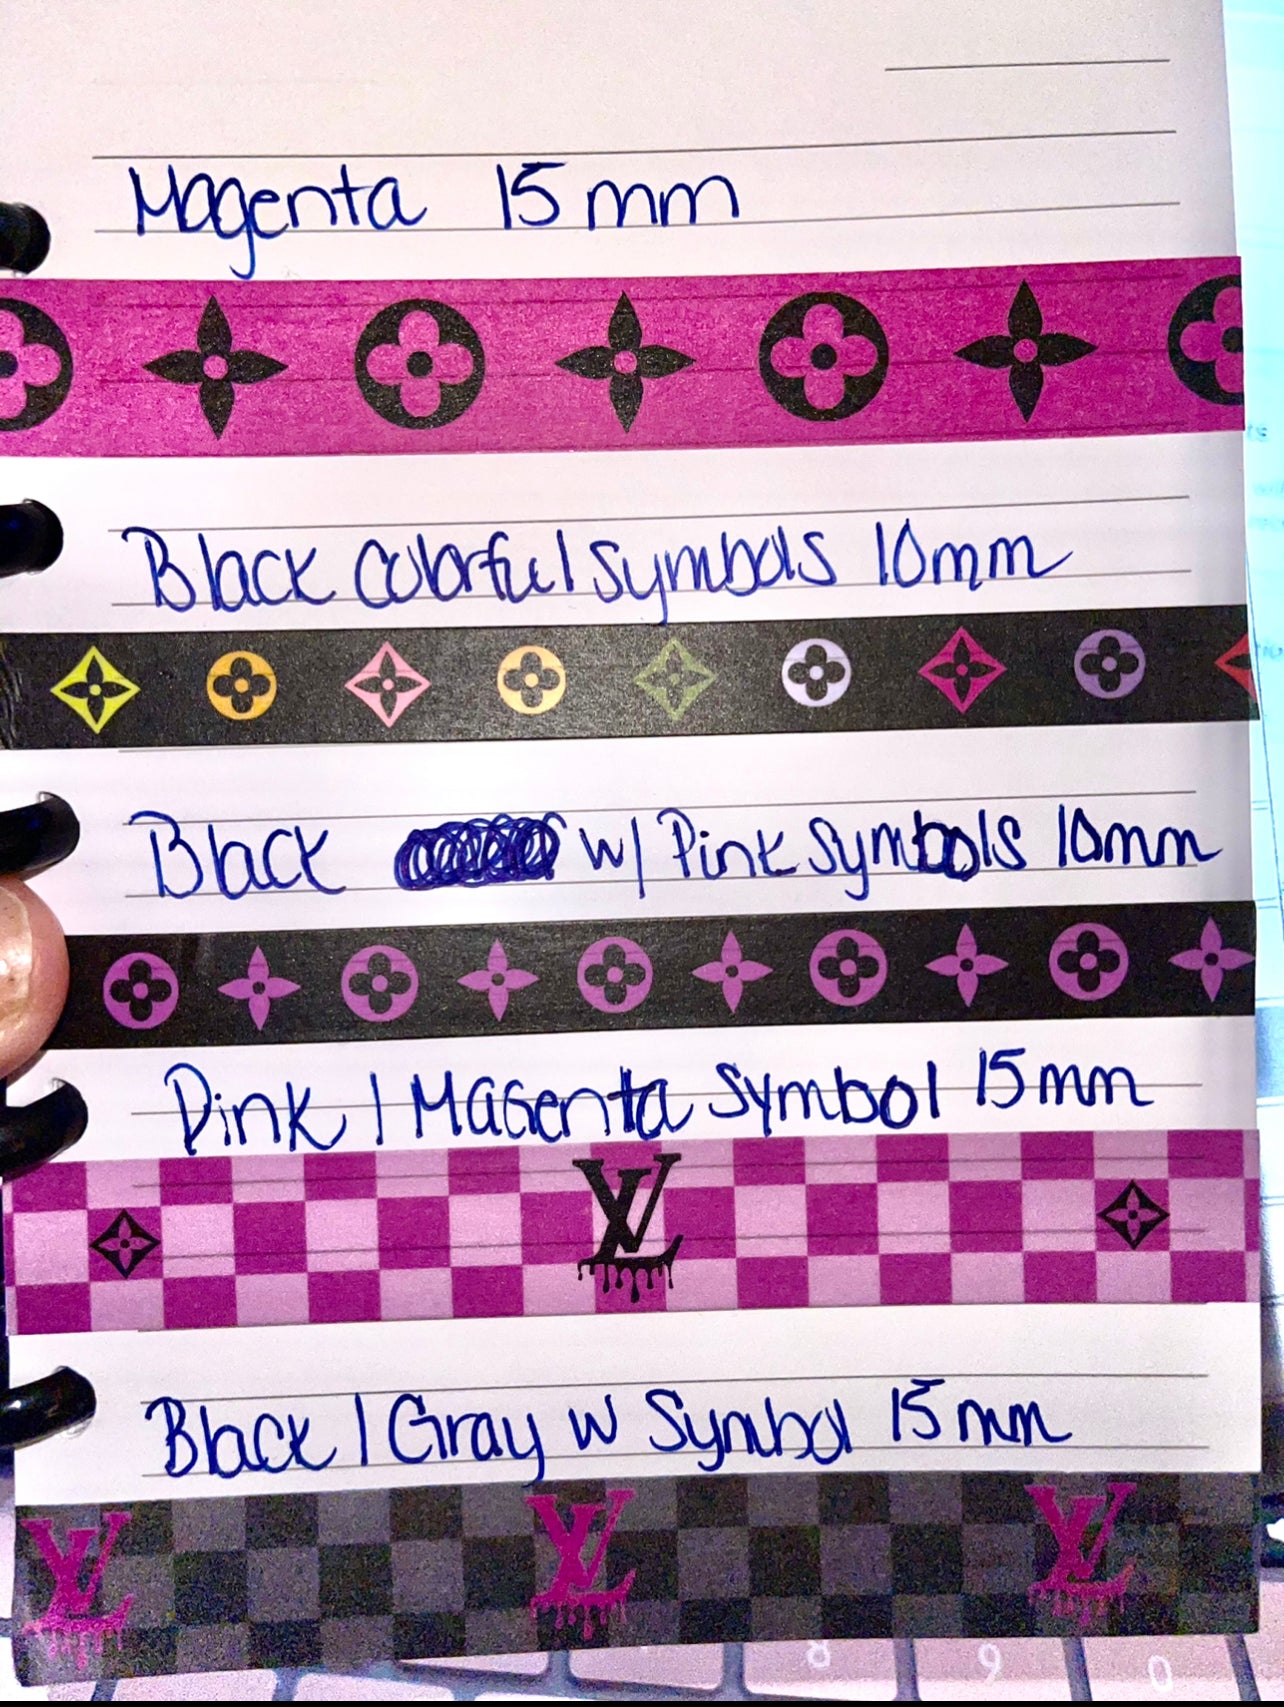 Magenta 15mm
Black Colorful Symbols 10mm
Black w/ Pink Symbols 10mm
Pink / Magenta Symbol 15mm
LV
Black / Gray w Symbol 15mm
LV LV LV
8 9 0